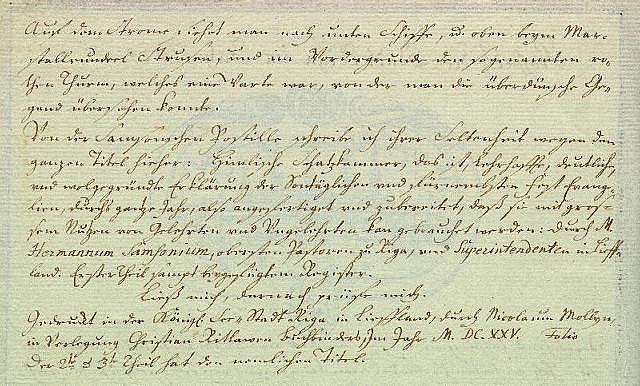 Auf dem Strome siehet man nach unten Schiffe, u. oben beym Mar-
stallrundeel Strusen, und im Vordergrunde den sogenannten ro-
then Thurm, welches eine Warte war, von der man die überdünsche Ge-
gend übersehen konnte.
Von der Samsonschen Postille schreibe ich ihrer Seltenheit wegen den
ganzen Titel hieher: Himlische Schatzkammer, das ist, Lehrhaffte, deutliche,
und wolgegründte Erklärung der Sontäglichen und fürnembsten Fest Evange-
lien, durchs gantze Jahr, also angefertiget und zubereitet, daß sie mit gros-
sem Nutzen von Gelehrten und Ungelehrten kan gebrauchet werden: durch M.
Hermannum Samsonium, obersten Pastoren zu Riga, und Superintendenten in Lieff-
land. Erster Theil sampt beygefügtem Register.
Ließ mich, darnach prüfe mich.
Gedruckt in der Königl. See-Stadt Riga in Lieffland, durch Nicolaum Mollyn,
in Verlegung Christian Rittawen Buchbinders, Im Jahr M. DC. XXV. Folio
Der 2te & 3te Theil hat den nemlichen Titel.